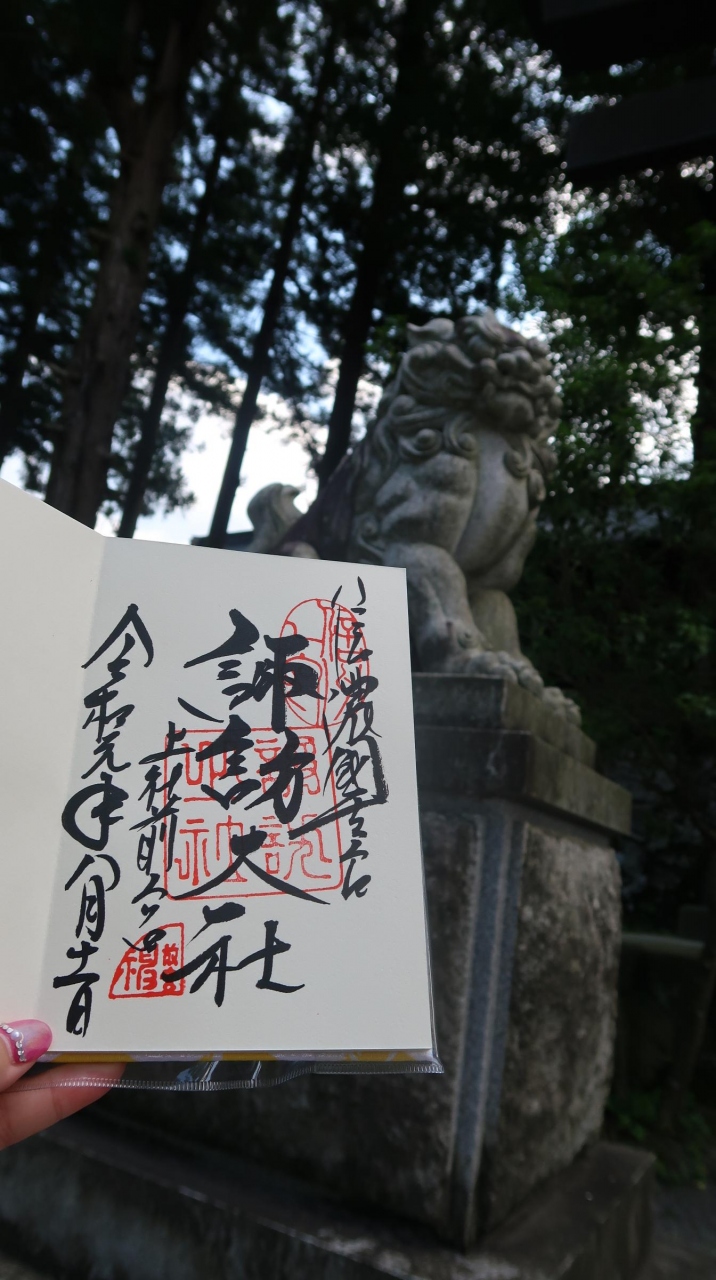 信濃國一之宮
諏訪大社
上社前宮
令和元年八月十一日
諏訪